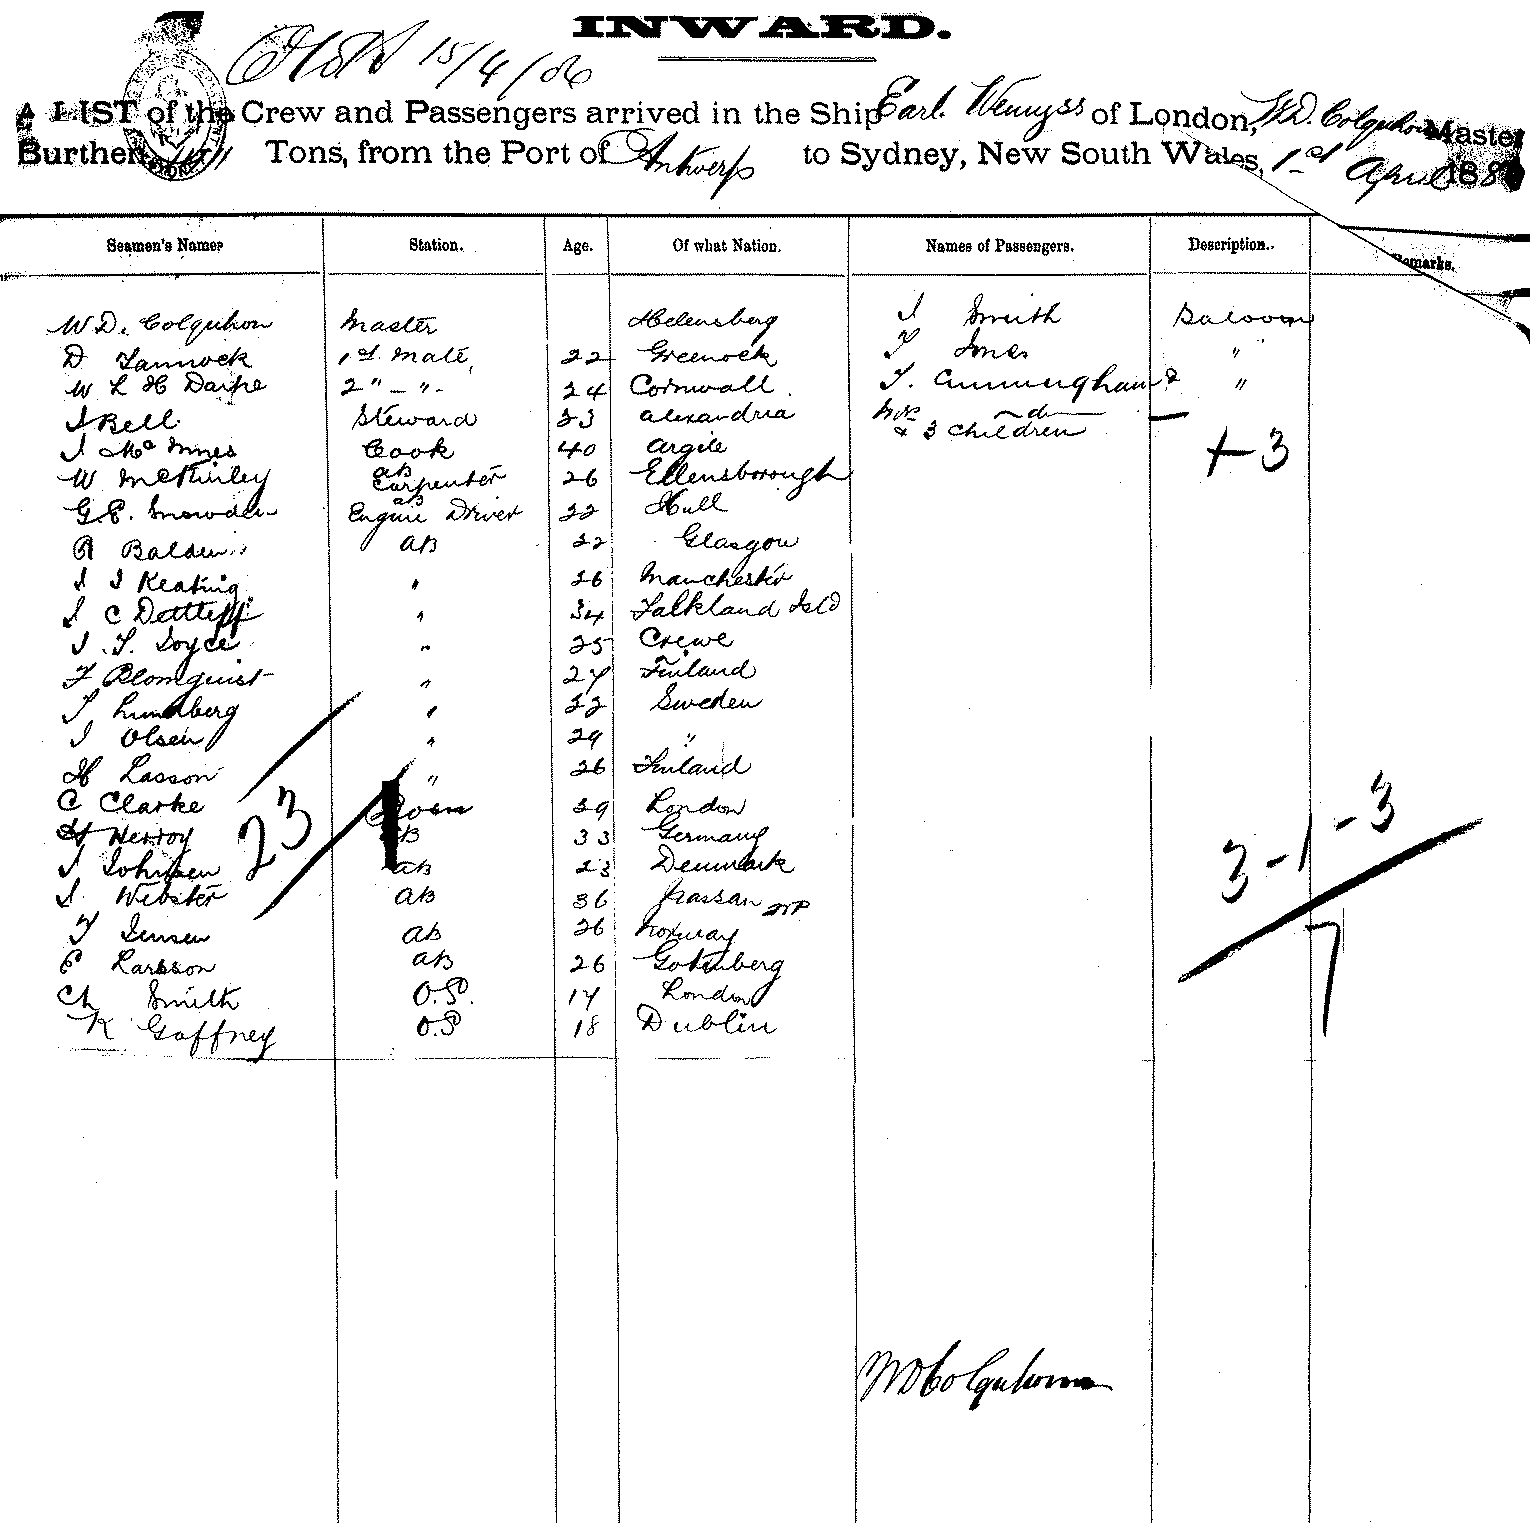 INWARD.
15/4/86
A LIST of the Crew and Passengers arrived in the Ship Earl Wemyss of London, W.D. Colquhoun Master
Burthen Tons, from the Port of Antwerp to Sydney, New South Wales, 1st April 188
Seamen's Names Station. Age. Of what Nation. Names of Passengers. Description. Remarks.
W D. Colquhon Master Helensberg J Smith Saloon
D Tannock 1st Mate, 22 Greenock T Jones "
W L H Darke 2 " - " - 24 Cornwall. T. Cunningham & "
J Bell Steward 23 Alexandria Mrs - do -
J McInnes Cook 40 Argile & 3 Children
+ 3
W McKinley AB Carpenter 26 Ellensborough
G.E. Snowden AB Engine Driver 22 Hull
R Baldwin AB 22 Glasgow
J J Keating " 26 Manchester
J C Dettleff " 34 Falkland Isld
J. T. Joyce " 25 Crewe
F Blomquist " 27 Finland
T Lundberg " 22 Sweden
J Olsen " 29 "
H Lasson " 26 Finland
C Clarke Bosn 39 London
H Herroy AB 33 Germany
J Johnsen AB 23 Denmark
J. Webster AB 36 Nassau NP
T Jensen AB 26 Norway
E Larsson AB 26 Gotenberg
Ch Smith O.S. 17 London
K Gaffney O.S 18 Dublin
23
3-1-3
7
W D Colquhoun